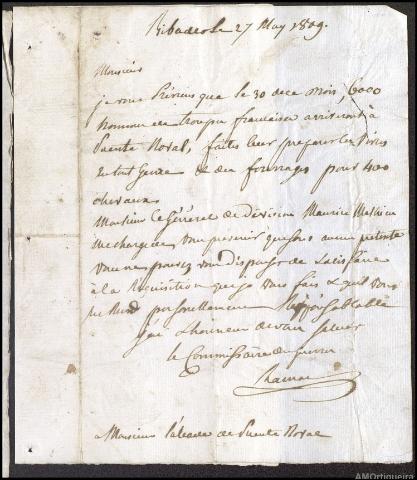 Ribadeo le 27 May 1809.
Monsieur
je vous préviens que le 30 de ce mois, 6000
hommes de troupes françaises arriveront à
Puente Noval, faites leur preparer les Vivres
en tout Genre & des fourrages pour 400
chevaux
Monsieur le Général de Division Maurice Mathieu
me charge de Vous prévenir que sous aucun prétexte
Vous ne pouvez vous dispenser de satisfaire
à la Requisition que je vous fais & qu'il vous
en Rend personellement
j'ai l'honneur de vous saluer
le Commissaire des guerres
a Monsieur l'alcade de Puente Noval
AMOrtigueira